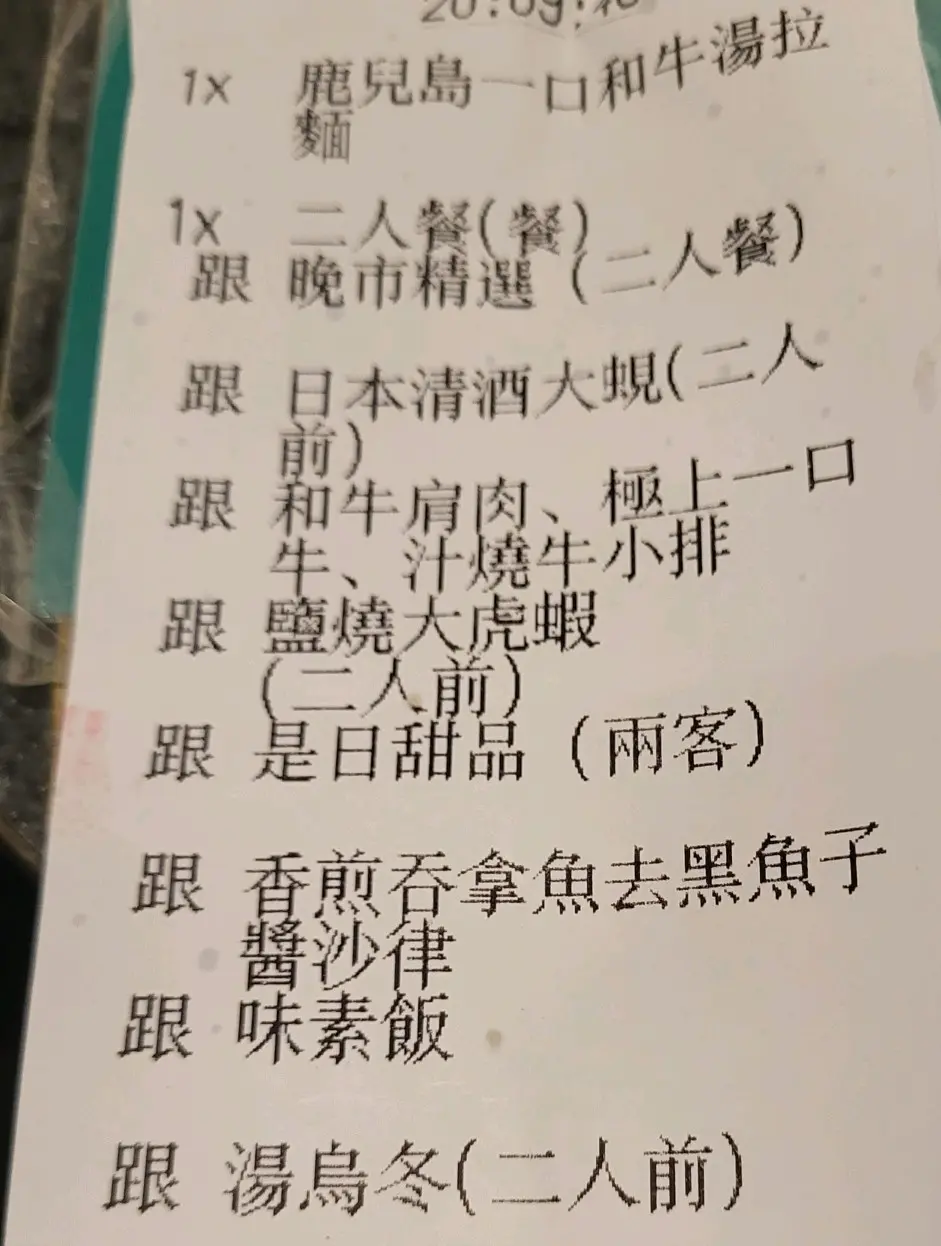 1x 鹿兒島一口和牛湯拉
麵
1x 二人餐(餐)
跟 晚市精選 (二人餐)
跟 日本清酒大蜆(二人
前)
跟 和牛肩肉、極上一口
牛、汁燒牛小排
跟 鹽燒大虎蝦
(二人前)
跟 是日甜品 (兩客)
跟 香煎吞拿魚去黑魚子
醬沙律
跟 味素飯
跟 湯烏冬(二人前)